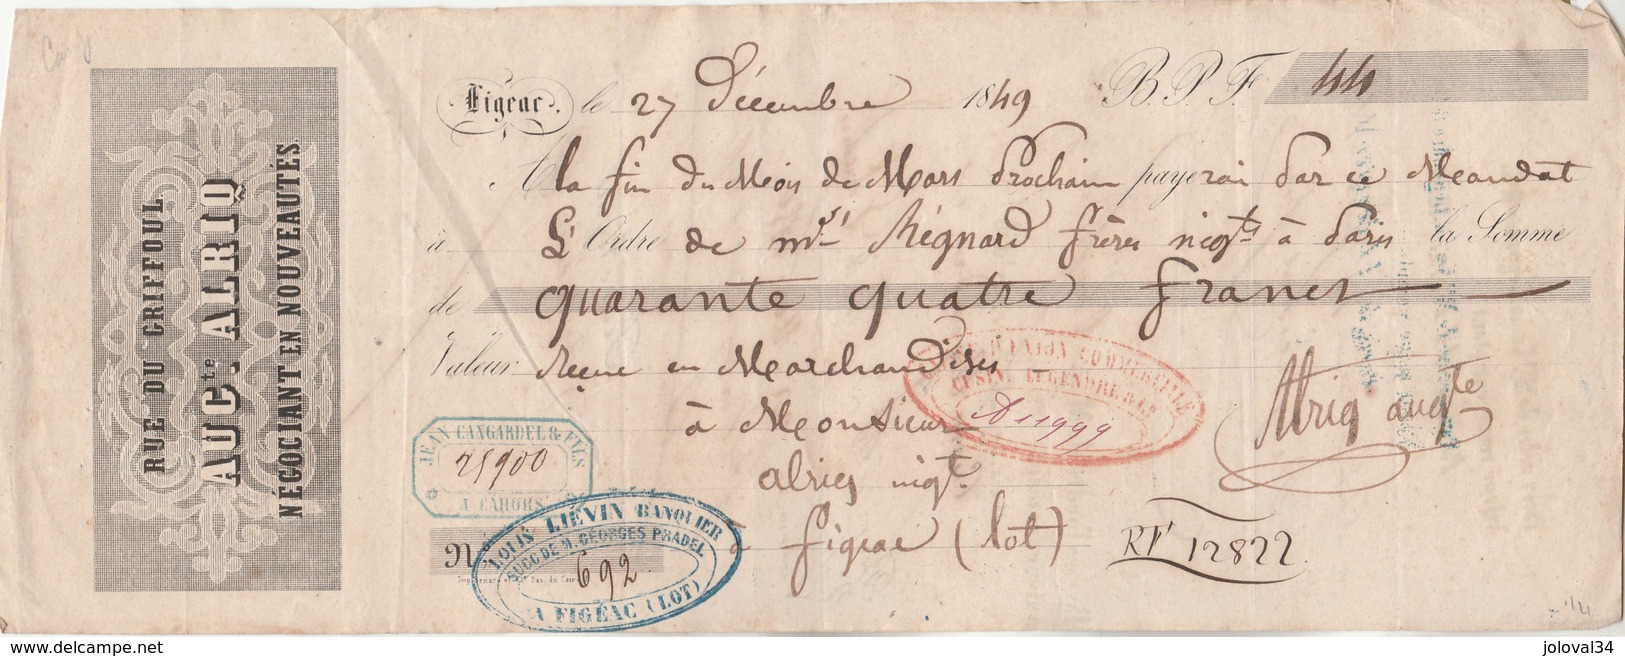 RUE DU GRIFFOUL.
AUG.te ALRIQ
NÉGOCIANT EN NOUVEAUTÉS.
Figeac. le 27 Décembre 1849 B.P.F. 44
A la fin du Mois de Mars Prochain payerai Par ce Mandat
à L' Ordre de Mrs Régnard frères négts à Paris la Somme
de quarante quatre francs
Valeur Reçue en Marchandises
à Monsieur
alriq négt
à figeac (lot)
Alriq augte
UNION COMMERCIALE
CUSIN, LEGENDRE & Cie
A 1999
JEAN CANGARDEL & FILS
25900
A CAHORS
N°
LOUIS LIÉVIN BANQUIER
SUCC. DE M. GEORGES PRADEL
692
A FIGEAC (LOT)
RF 12822
joloval34